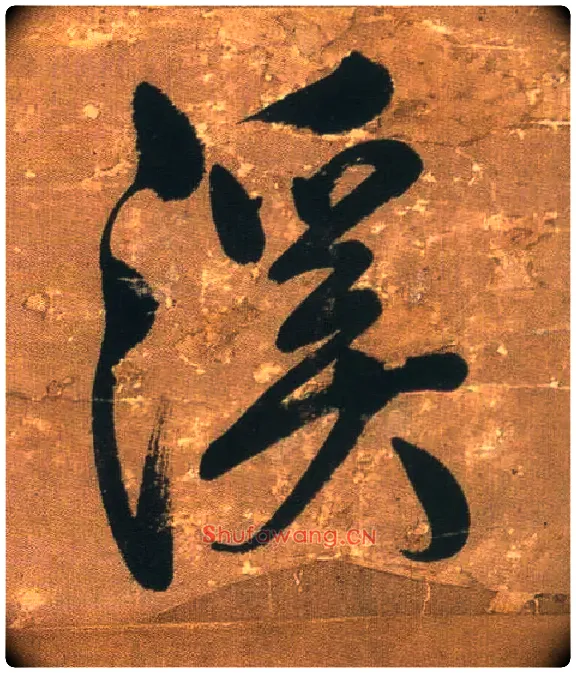 溪
Shufawang.CN